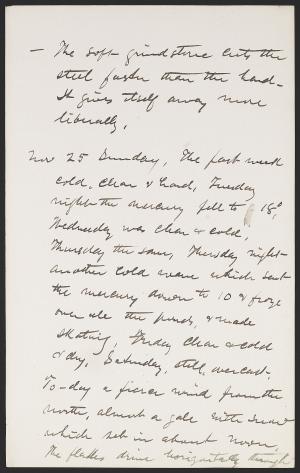 — The soft grindstone cuts the
steel faster than the hard–
It gives itself away more
liberally.
Nov 25 Sunday, The past week
cold, clear & hard, Tuesday
night the mercury fell to 18°,
Wednesday was clear & cold,
Thursday the same, Thursday night–
another cold wave which sent
the mercury down to 10 & froze
over all the ponds, & made
skating, Friday clear & cold
& dry, Saturday, still, overcast.
To-day a fierce wind from the
north, almost a gale with snow
which set in about noon,
The flakes drive horizontally through